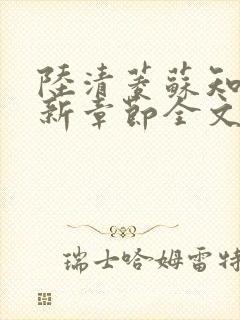 陸清蔓蘇知
新章節全文
瑞士哈姆雷特